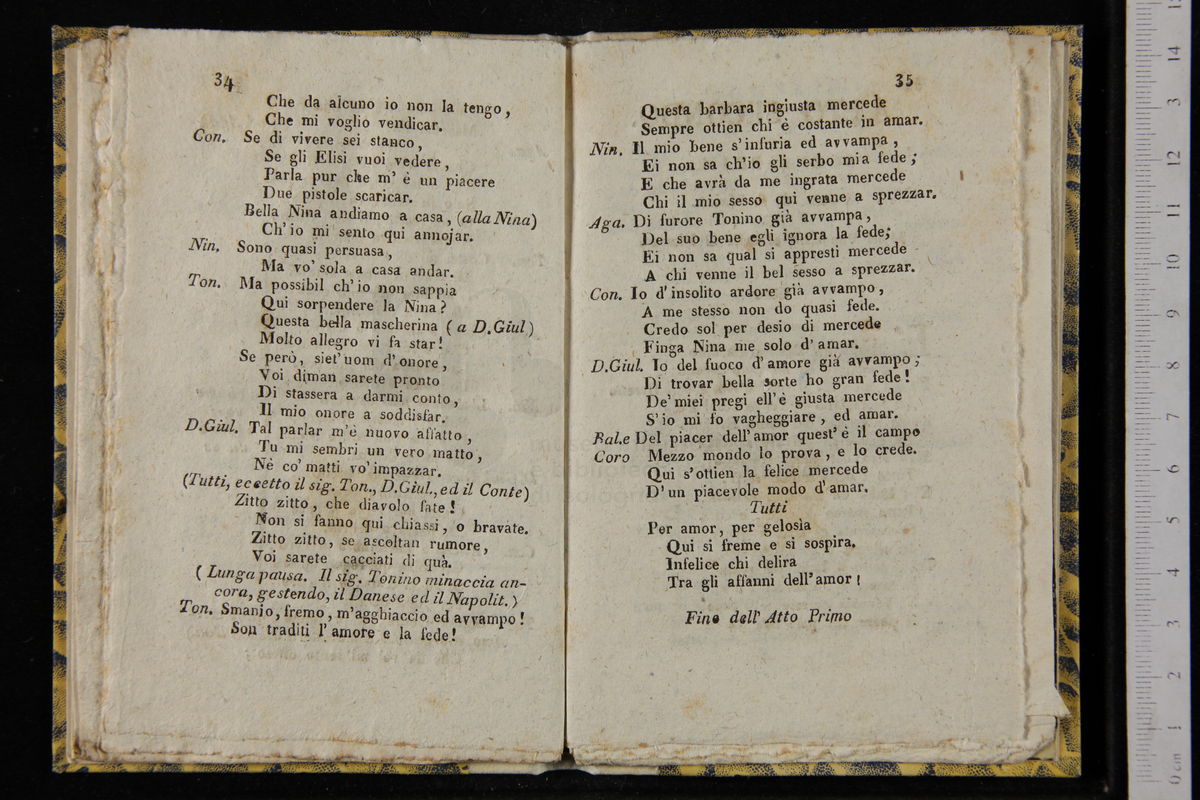 34
Che da alcuno io non la tengo,
Che mi voglio vendicar.
Con. Se di vivere sei stanco,
Se gli Elisi vuoi vedere,
Parla pur che m' è un piacere
Due pistole scaricar.
Bella Nina andiamo a casa, (alla Nina)
Ch' io mi sento qui annojar.
Nin. Sono quasi persuasa,
Ma vo' sola a casa andar.
Ton. Ma possibil ch' io non sappia
Qui sorpendere la Nina?
Questa bella mascherina (a D.Giul)
Molto allegro vi fa star!
Se però, siet' uom d'onore,
Voi diman sarete pronto
Di stassera a darmi conto,
Il mio onore a soddisfar.
D.Giul. Tal parlar m'è nuovo affatto,
Tu mi sembri un vero matto,
Nè co' matti vo' impazzar.
(Tutti, eccetto il sig. Ton., D.Giul., ed il Conte)
Zitto zitto, che diavolo fate!
Non si fanno qui chiassi, o bravate.
Zitto zitto, se ascoltan rumore,
Voi sarete cacciati di quà.
(Lunga pausa. Il sig. Tonino minaccia an-
cora, gestendo, il Danese ed il Napolit.)
Ton. Smanio, fremo, m'agghiaccio ed avvampo!
Son traditi l' amore e la fede!
35
Questa barbara ingiusta mercede
Sempre ottien chi è costante in amar.
Nin. Il mio bene s'infuria ed avvampa,
Ei non sa ch'io gli serbo mia fede;
E che avrà da me ingrata mercede
Chi il mio sesso qui venne a sprezzar.
Aga. Di furore Tonino già avvampa,
Del suo bene egli ignora la fede;
Ei non sa qual si appresti mercede
A chi venne il bel sesso a sprezzar.
Con. Io d' insolito ardore già avvampo,
A me stesso non do quasi fede.
Credo sol per desio di mercede
Finga Nina me solo d' amar.
D.Giul. Io del fuoco d' amore già avvampo;
Di trovar bella sorte ho gran fede!
De' miei pregi ell' è giusta mercede
S' io mi fo vagheggiare, ed amar.
Bal.e Del piacer dell' amor quest' è il campo
Coro Mezzo mondo lo prova, e lo crede.
Qui s' ottien la felice mercede
D' un piacevole modo d' amar.
Tutti
Per amor, per gelosia
Qui si freme e si sospira.
Infelice chi delira
Tra gli affanni dell' amor!
Fine dell' Atto Primo
0 cm 1 2 3 4 5 6 7 8 9 10 11 12 3 14